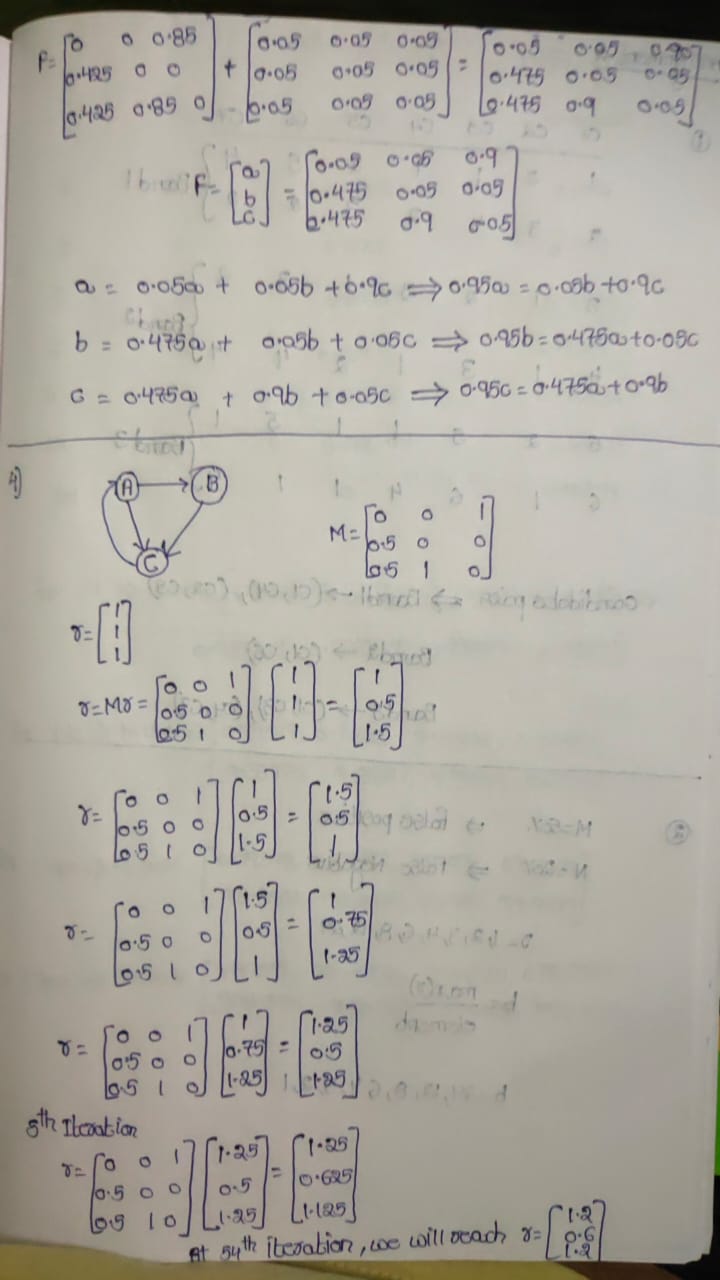 F= [0 0 0.85; 0.425 0 0; 0.425 0.85 0] + [0.05 0.05 0.05; 0.05 0.05 0.05; 0.05 0.05 0.05] = [0.05 0.05 0.90; 0.475 0.05 0.05; 0.475 0.9 0.05]
F= [a; b; c] = [0.05 0.05 0.9; 0.475 0.05 0.05; 0.475 0.9 0.05]
a = 0.05a + 0.05b + 0.9c ⟹ 0.95a = 0.05b + 0.9c
b = 0.475a + 0.05b + 0.05c ⟹ 0.95b = 0.475a + 0.05c
c = 0.475a + 0.9b + 0.05c ⟹ 0.95c = 0.475a + 0.9b
4)
A B
C
M= [0 0 1; 0.5 0 0; 0.5 1 0]
r= [1; 1; 1]
r=Mr= [0 0 1; 0.5 0 0; 0.5 1 0] [1; 1; 1] = [1; 0.5; 1.5]
r= [0 0 1; 0.5 0 0; 0.5 1 0] [1; 0.5; 1.5] = [1.5; 0.5; 1]
r= [0 0 1; 0.5 0 0; 0.5 1 0] [1.5; 0.5; 1] = [1; 0.75; 1.25]
r= [0 0 1; 0.5 0 0; 0.5 1 0] [1; 0.75; 1.25] = [1.25; 0.5; 1.25]
5th Iteration
r= [0 0 1; 0.5 0 0; 0.5 1 0] [1.25; 0.5; 1.25] = [1.25; 0.625; 1.125]
At 54th iteration, we will reach r= [1.2; 0.6; 1.2]